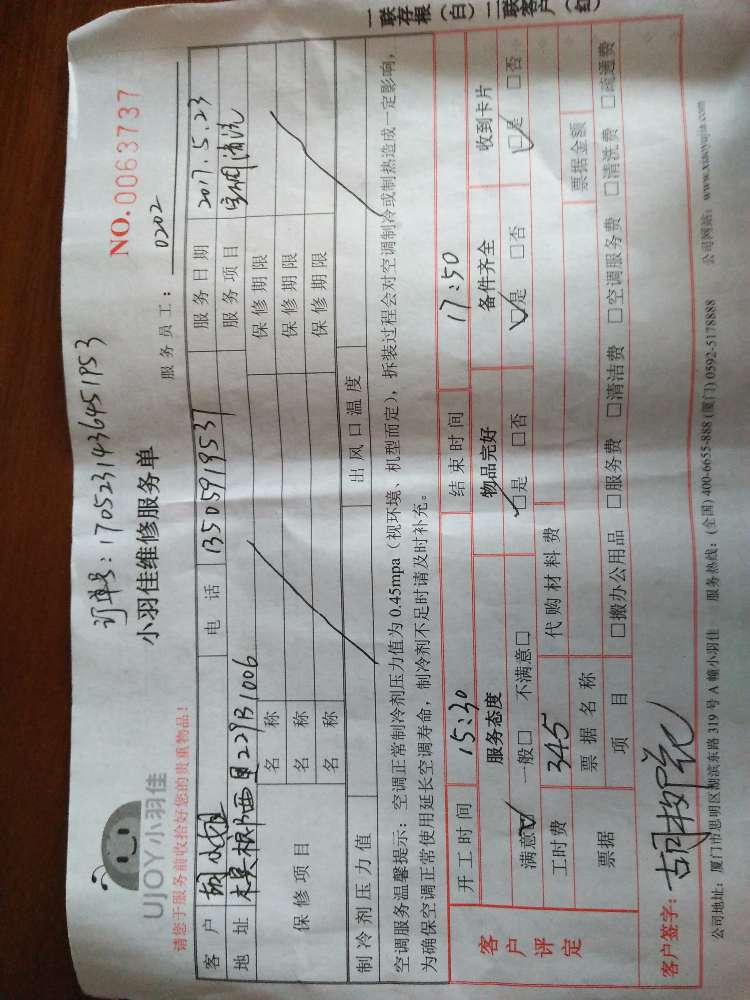 一联存根（白）二联客户（红）
订单号：1705231436451953
NO.0063737
UJOY小羽佳
小羽佳维修服务单
服务员工： 0202
请您于服务前收拾好您的贵重物品！
客 户 胡小姐 电 话 13505919537 服务日期 2017.5.23
地 址 槟榔西里229B1006 服务项目 空调清洗
保修项目 名 称 保修期限
名 称 保修期限
名 称 保修期限
制冷剂压力值 出风口温度
空调服务温馨提示：空调正常制冷剂压力值为 0.45mpa（视环境、机型而定），拆装过程会对空调制冷或制热造成一定影响，
为确保空调正常使用延长空调寿命，制冷剂不足时请及时补充。
客户评定 开工时间 15:30 结束时间 17:50
服务态度 物品完好 备件齐全 收到卡片
满意☑ 一般□ 不满意□ ☑是 □否 ☑是 □否 ☑是 □否
工时费 345 代购材料费
票据 票据名称 票据金额
项 目 □搬办公用品 □服务费 □清洁费 □空调服务费 □清洗费 □疏通费
客户签字：
公司地址：厦门市思明区湖滨东路 319 号 A 幢小羽佳 服务热线：(全国) 400-6655-888 (厦门) 0592-5178888 公司网站：www.xiaoyujia.com